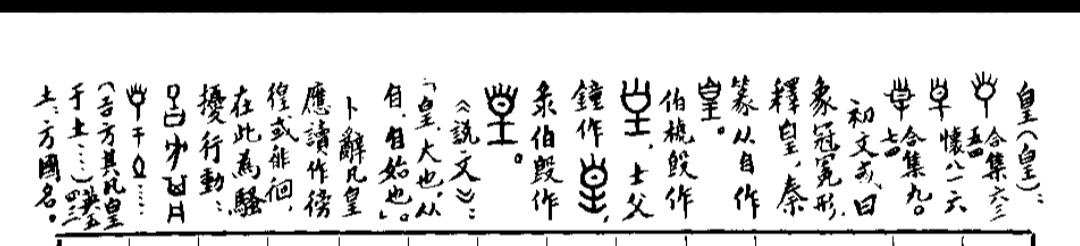 皇(皇)：
合集六三
懷八一六
合集九〇七四
初文或曰
象冠冕形，
釋皇，秦
篆从自作
皇。
伯椃𣪘作
，士父
鐘作，
彔伯𣪘作
。
《說文》：
「皇，大也，从
自，自始也。」
卜辭凡皇
應讀作徬
徨或徘徊，
在此為騷
擾行動：
……
(舌方其凡皇
于土……)英五
土：方國名。